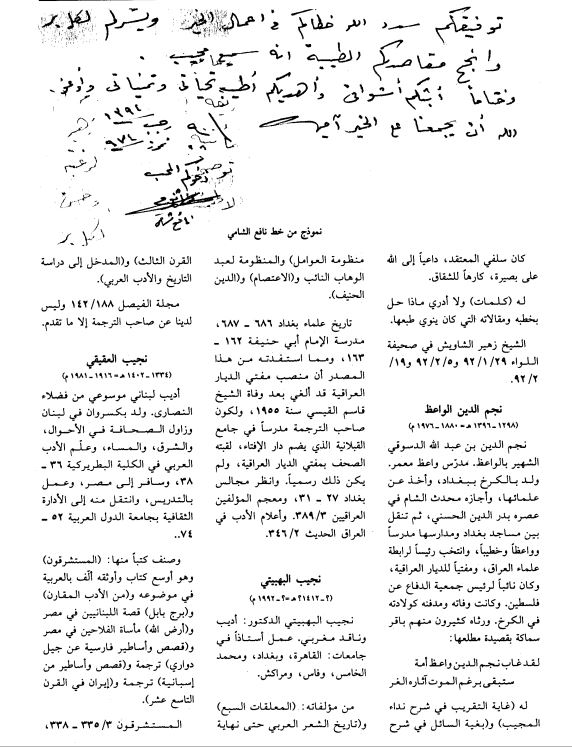 توفيقكم سدد الله خطاكم في اعمال الخير ويسر لكم
وانجح مقاصدكم الطيبة انه سميع مجيب
وختاماً أبثكم أشواقي وأهديكم أطيب تحياتي وتمنياتي
الله أن يجمعنا مع الخير آمين
نموذج من خط نافع الشامي
كان سلفي المعتقد، داعياً إلى الله
على بصيرة، كارهاً للشقاق.
له (كلمات) ولا أدري ماذا حل
بخطبه ومقالاته التي كان ينوي طبعها.
الشيخ زهير الشاويش في صحيفة
اللواء ٩٢/١/٢٩ و٩٢/٢/٥ و١٩/
٩٢/٢.
نجم الدين الواعظ
(١٢٩٨-١٣٩٦ هـ=١٨٨٠-١٩٧٦ م)
نجم الدين بن عبد الله الدسوقي
الشهير بالواعظ. مدرّس واعظ معمر.
ولد بالكرخ ببغداد، وأخذ عن
علمائها، وأجازه محدث الشام في
عصره بدر الدين الحسني، ثم تنقل
بين مساجد بغداد ومدارسها مدرساً
وواعظاً وخطيباً، وانتخب رئيساً لرابطة
علماء العراق، ومفتياً للديار العراقية،
وكان نائباً لرئيس جمعية الدفاع عن
فلسطين. وكانت وفاته ومدفنه كولادته
في الكرخ. ورثاه كثيرون منهم باقر
سماكة بقصيدة مطلعها:
لقد غاب نجم الدين واعظ أمة
ستبقى برغم الموت آثاره الغر
له (غاية التقريب في شرح نداء
المجيب) و(بغية السائل في شرح
منظومة العوامل) والمنظومة لعبد
الوهاب النائب و(الاعتصام) و(الدين
الحنيف).
تاريخ علماء بغداد ٦٨٦ - ٦٨٧،
مدرسة الإمام أبي حنيفة ١٦٢ -
١٦٣، ومما استفدته من هذا
المصدر أن منصب مفتي الديار
العراقية قد ألغي بعد وفاة الشيخ
قاسم القيسي سنة ١٩٥٥، ولكون
صاحب الترجمة مدرساً في جامع
القبلانية الذي يضم دار الإفتاء، لقبته
الصحف بمفتي الديار العراقية، ولم
يكن ذلك رسمياً. وانظر مجالس
بغداد ٢٧ - ٣١، ومعجم المؤلفين
العراقيين ٣٨٩/٣، وأعلام الأدب في
العراق الحديث ٣٤٦/٢.
نجيب البهبيتي
(؟-١٤١٢هـ=؟-١٩٩٢م)
نجيب البهبيتي الدكتور: أديب
وناقد مغربي. عمل أستاذاً في
جامعات: القاهرة، وبغداد، ومحمد
الخامس، وفاس، ومراكش.
من مؤلفاته: (المعلقات السبع)
و(تاريخ الشعر العربي حتى نهاية
القرن الثالث) و(المدخل إلى دراسة
التاريخ والأدب العربي).
مجلة الفيصل ١٤٢/١٨٨ وليس
لدينا عن صاحب الترجمة إلا ما تقدم.
نجيب العقيقي
(١٣٣٤-١٤٠٢ هـ=١٩١٦-١٩٨١ م)
أديب لبناني موسوعي من فضلاء
النصارى. ولد بكسروان في لبنان
وزاول الصحافة في الأحوال،
والشرق، والمساء، وعلّم الأدب
العربي في الكلية البطريركية ٣٦ -
٣٨، وسافر إلى مصر، وعمل
بالتدريس، وانتقل منه إلى الأدارة
الثقافية بجامعة الدول العربية ٥٢ -
٧٤.
وصنف كتباً منها: (المستشرقون)
وهو أوسع كتاب وأوثقه ألّف بالعربية
في موضوعه و(من الأدب المقارن)
و(برج بابل) قصة اللبنانيين في مصر
و(أرض الله) مأساة الفلاحين في مصر
و(قصص وأساطير فارسية عن جيل
دواري) ترجمة و(قصص وأساطير من
إسبانية) ترجمة و(إيران في القرن
التاسع عشر).
المستشرقون ٣٣٥/٣ - ٣٣٨،